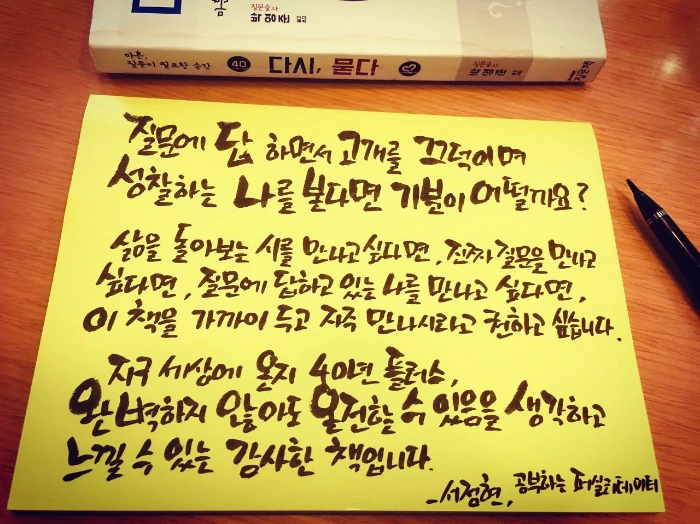 질문술사
박영준
마흔,
질문이 필요한 순간
40
다시, 묻다
질문술사
박영준
질문에 답 하면서 고개를 끄덕이며
성찰하는 나를 본다면 기분이 어떨까요?
삶을 돌아보는 시를 만나고 싶다면, 진짜 질문을 만나고
싶다면, 질문에 답하고 있는 나를 만나고 싶다면,
이 책을 가까이 두고 자주 만나시라고 권하고 싶습니다.
지구 세상에 온지 40년 플러스,
완벽하지 않아도 온전할 수 있음을 생각하고
느낄 수 있는 감사한 책입니다.
-서정현, 공부하는 퍼실리테이터